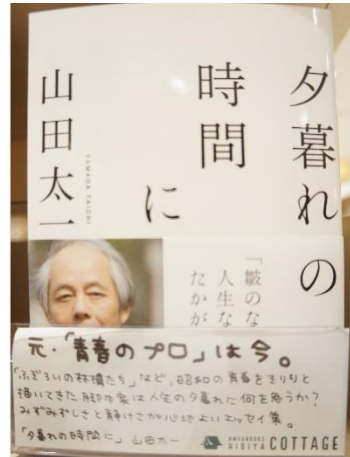 夕暮れの
時間
に
山田太一
YAMADA TAICHI
「皺のな
人生な
たかが
元・「青春のプロ」は今。
「ふぞろいの林檎たち」など、昭和の青春をきりりと
描いてきた脚本家は人生の夕暮れに何を思うか?
みずみずしさと静けさが心地よいエッセイ集。
「夕暮れの時間に」山田太一
HIBIYA COTTAGE